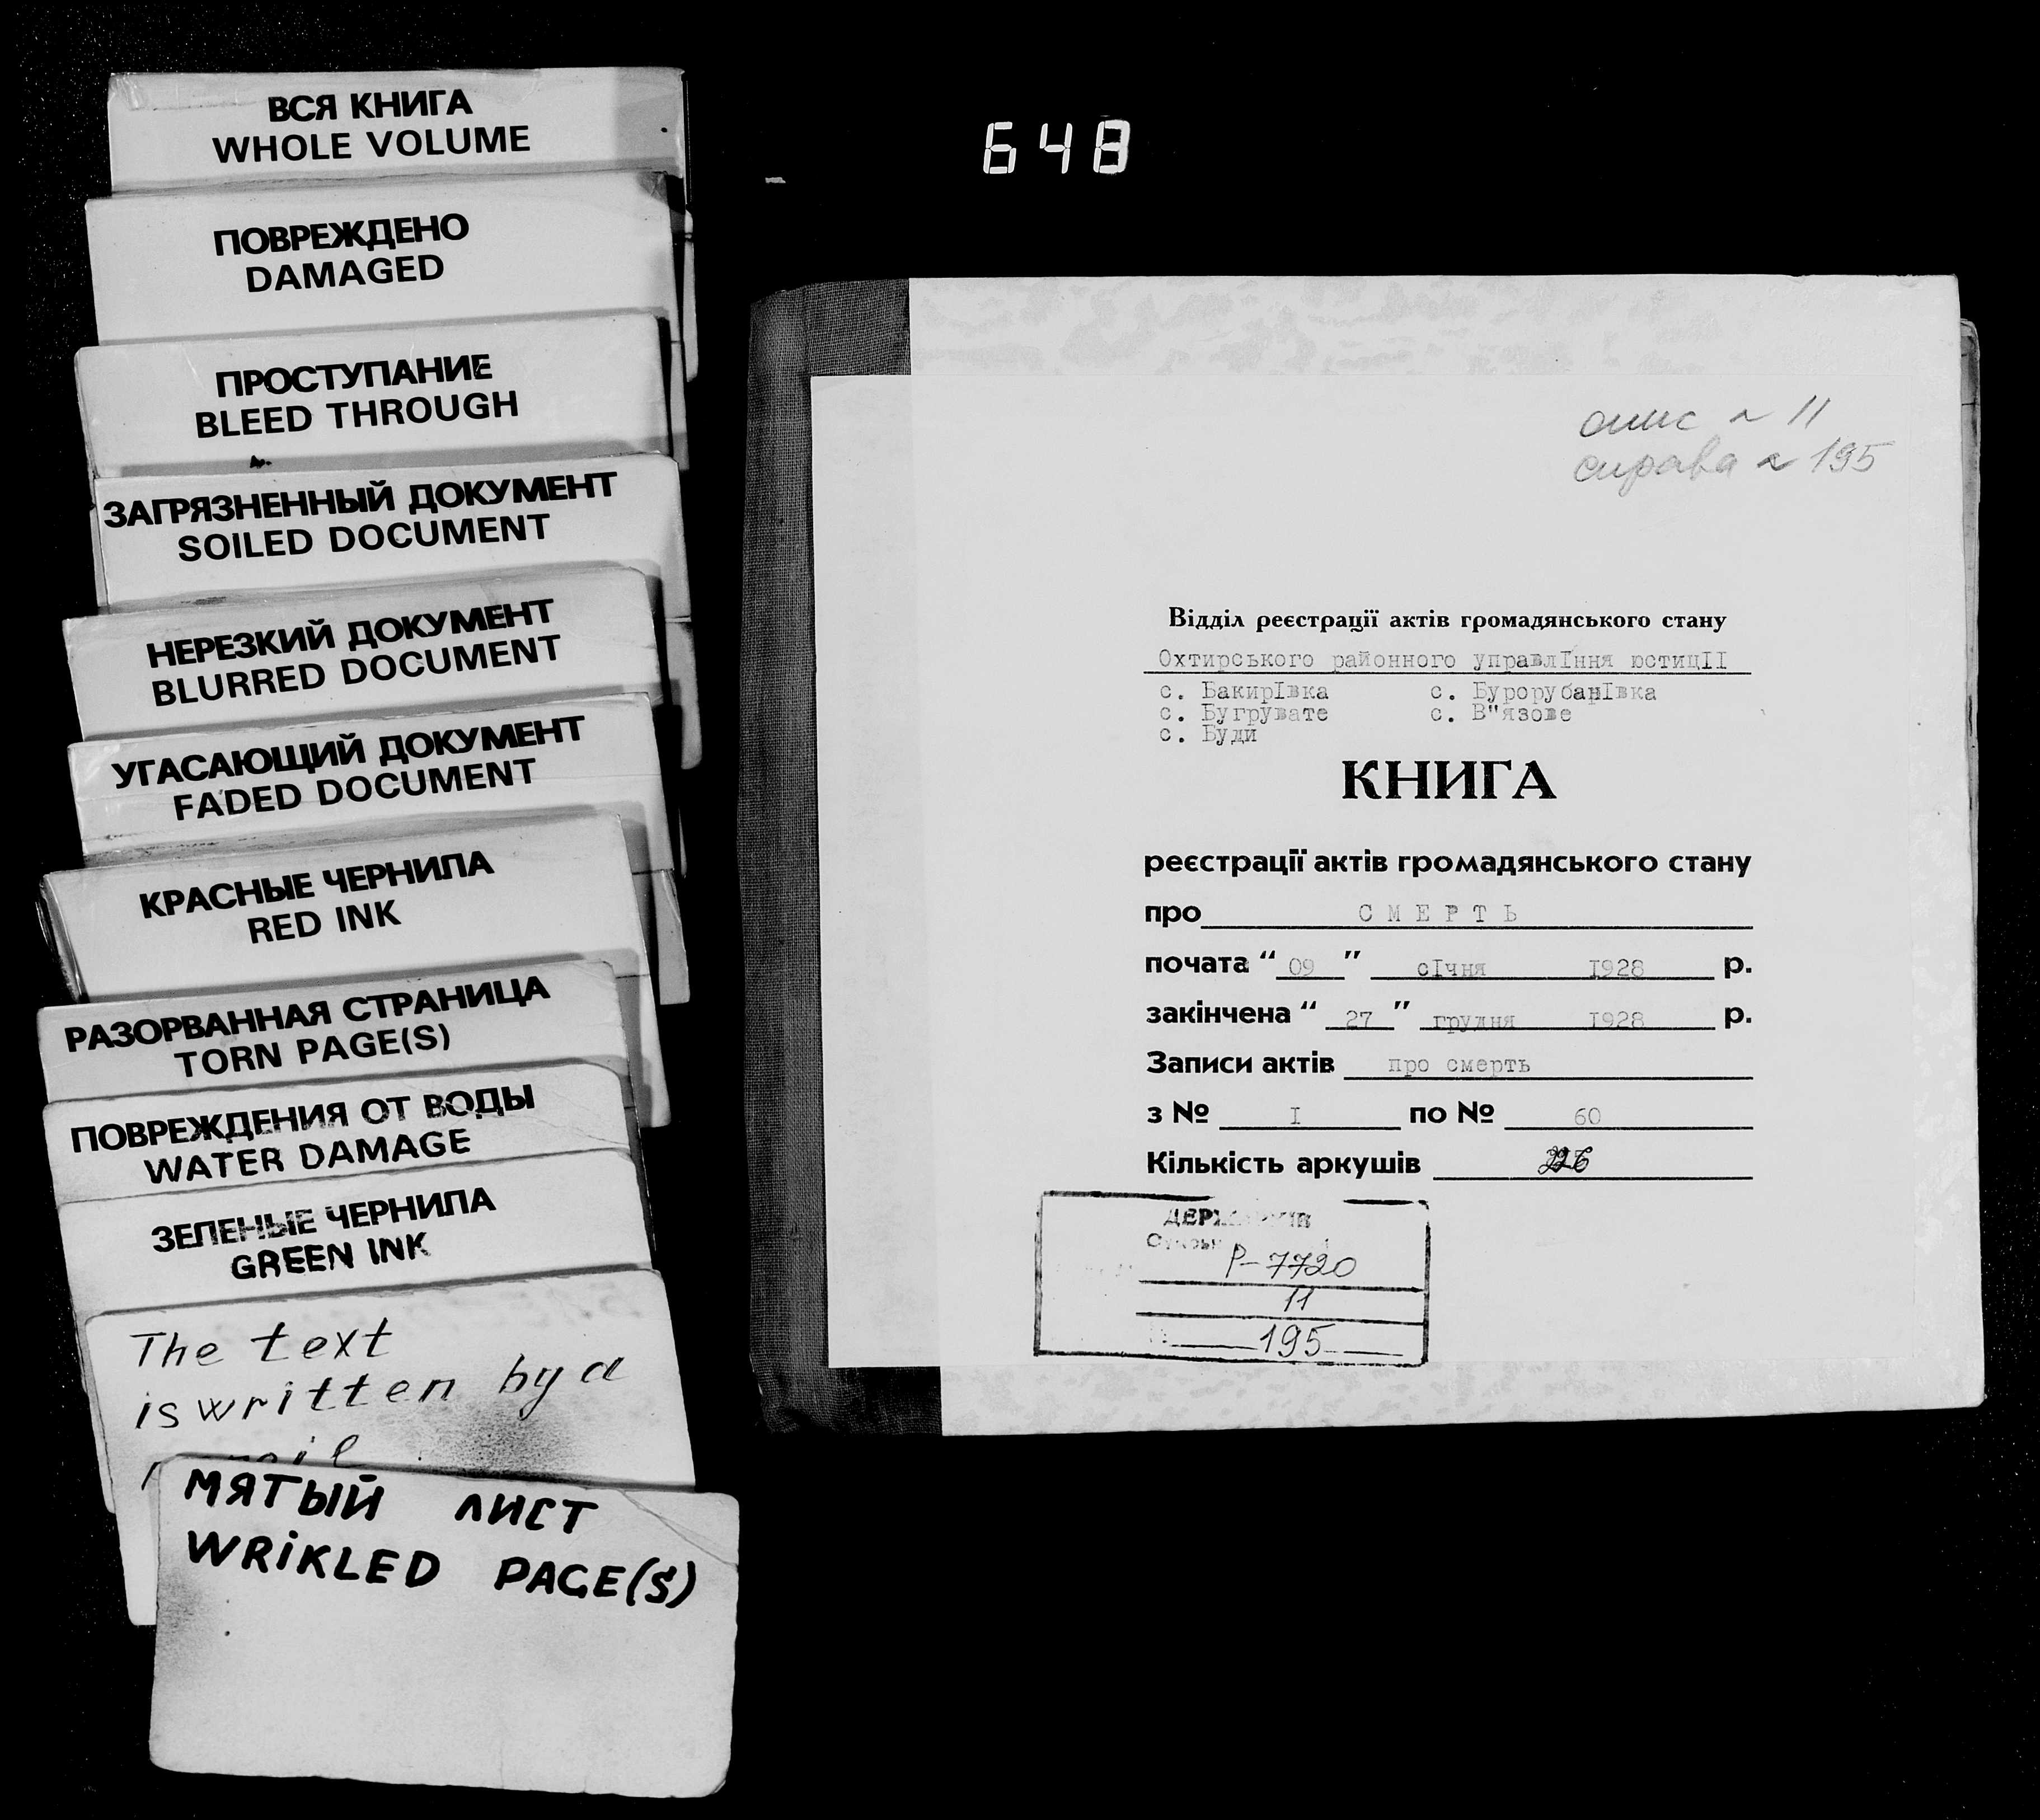 ВСЯ КНИГА
WHOLE VOLUME
ПОВРЕЖДЕНО
DAMAGED
ПРОСТУПАНИЕ
BLEED THROUGH
ЗАГРЯЗНЕННЫЙ ДОКУМЕНТ
SOILED DOCUMENT
НЕРЕЗКИЙ ДОКУМЕНТ
BLURRED DOCUMENT
УГАСАЮЩИЙ ДОКУМЕНТ
FADED DOCUMENT
КРАСНЫЕ ЧЕРНИЛА
RED INK
РАЗОРВАННАЯ СТРАНИЦА
TORN PAGE(S)
ПОВРЕЖДЕНИЯ ОТ ВОДЫ
WATER DAMAGE
ЗЕЛЕНЫЕ ЧЕРНИЛА
GREEN INK
The text
is written by a
МЯТЫЙ ЛИСТ
WRiKLED PAGE(S)
648
опис № 11
справа № 195
Відділ реєстрації актів громадянського стану
Охтирського районного управлIння юстицII
с. БакирIвка с. БурорубанIвка
с. Бугрувате с. В"язове
с. Буди
КНИГА
реєстрації актів громадянського стану
про СМЕРТЬ
почата “ 09 ” сIчня I928 р.
закінчена “ 27 ” грудня I928 р.
Записи актів про смерть
з № I по № 60
Кількість аркушів 226
Р-7720
11
195